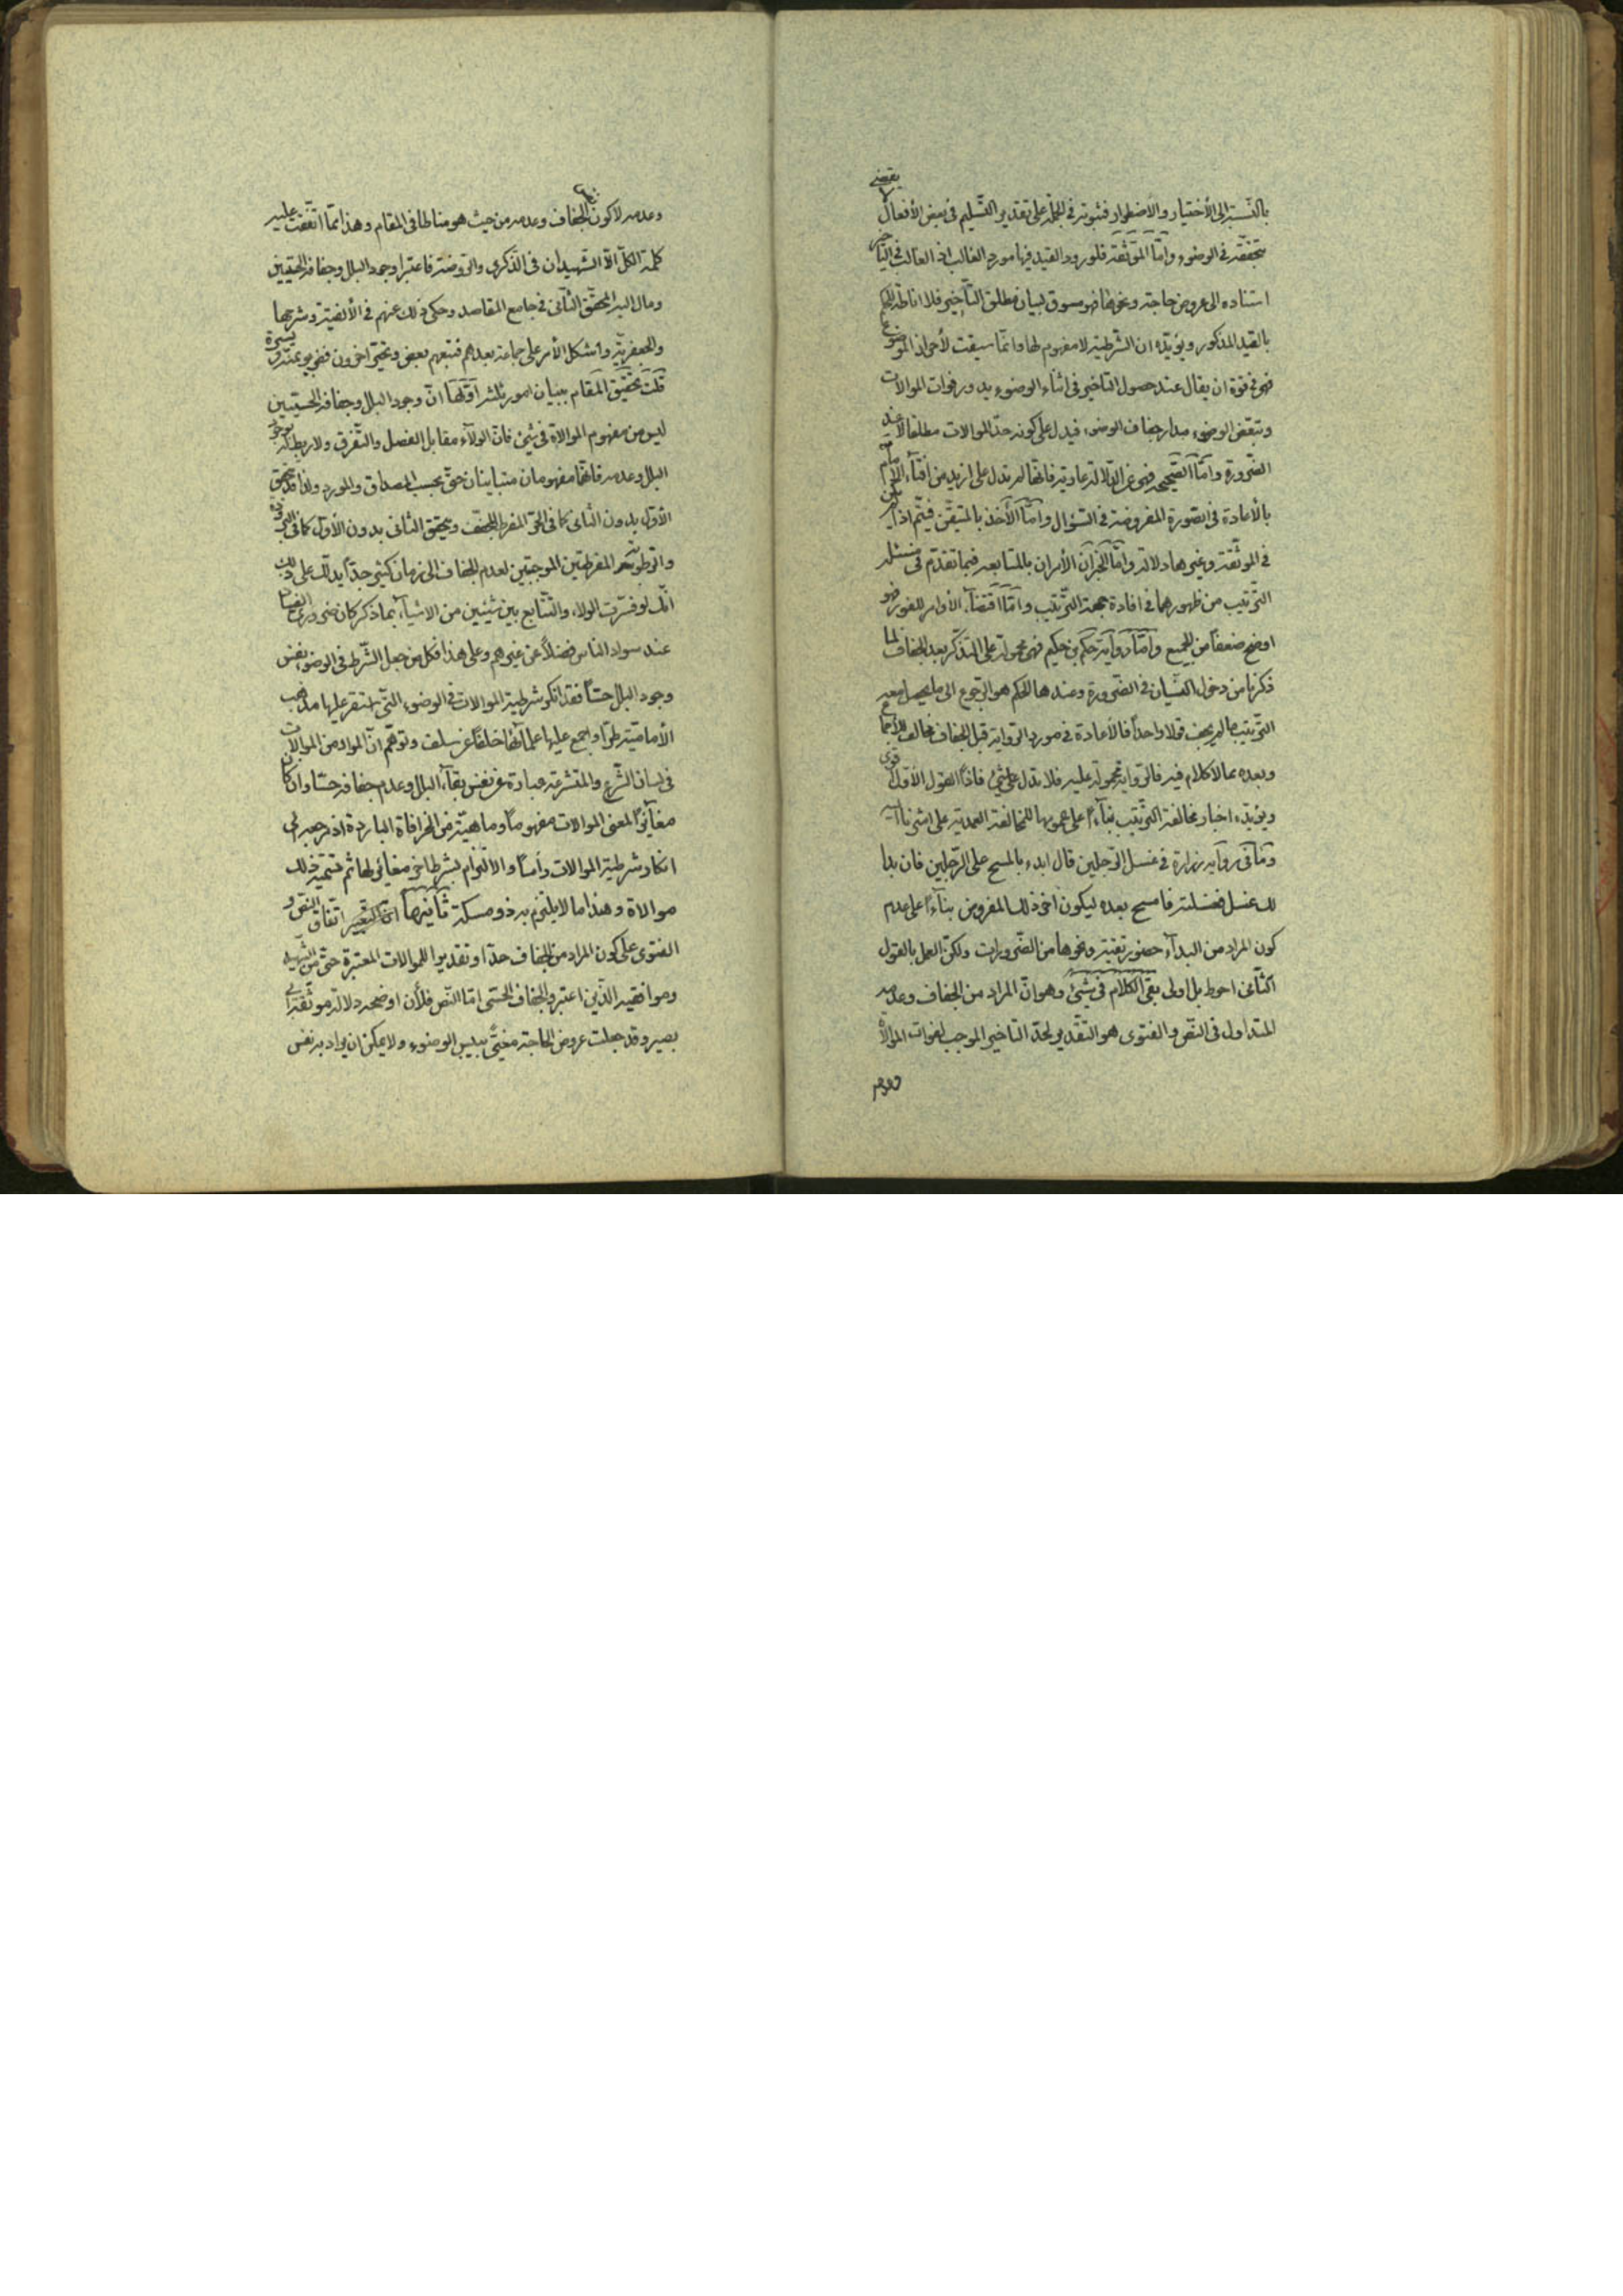 بالنسبة الى الأختيار والأضطرار فثبوته فى الجملة على تقدير التسليم فى بعض الأفعال يقضى
بتحققه فى الوضوء وامّا الموثّقة فلورود القيد فيها مورد الغالب اذ الغالب فى التأخير
استناده الى عروض حاجة ونحوها فهو مسوق لبيان مطلق التأخير فلا اناطة للحكم
بالقيد المذكور ويؤيّده ان الشرطية لا مفهوم لها وانّما سيقت لأحراز الموضوع
فهو فى قوة ان يقال عند حصول التاخير فى اثناء الوضوء يدور فوات الموالات
وتبعّض الوضوء مدار جفاف الوضوء فيدل على كونه حدّ الموالات مطلقا لا عند
الضّرورة وامّا الصّحيحة فهى عن الدّلالة عارية فانّها لم تدل على ازيد من افتاء الأمام
بالأعادة فى الصّورة المفروضة فى السّؤال وامّا الأخذ بالمتيقّن فيتمّ اذا لم يكن
فى الموثّقة وغيرها دلالة وامّا الخبران الأمران بالمتابعة فبما تقدّم فى مسئلة
التّرتيب من ظهورهما فى افادة جهة التّرتيب وامّا اقتضاء الأوامر للفور فهو
اوضح ضعفاً من الجميع وامّا رواية حكم بن حكيم فهى محمولة على التذكّر بعد الجفاف لما
ذكرنا من دخول النسيان فى الضّرورة وعندها الحكم هو الرّجوع الى ما يحصل معه
التّرتيب ما لم يجف قولا واحداً فالأعادة فى مورد الرّواية قبل الجفاف مخالف للأجماع
وبعده مما لا كلام فيه فالرّواية محمولة عليه فلا تدل على شئ فاذاً القول الأوّل قوى
ويؤيّده اخبار مخالفة التّرتيب بناءً على عمومها للمخالفة العمديّة على اشرنا اليه
وما فى رواية زرارة فى غسل الرّجلين قال ابدء بالمسح على الرّجلين فان بدا
لك غسل فغسلته فامسح بعده ليكون اخر ذلك المفروض بناءً على عدم
كون المراد من البداء حضور تقيّة ونحوها من الضّرورات ولكنّ العمل بالقول
الثّانى احوط بل اولى بقى الكلام فى شئ وهو انّ المراد من الجفاف وعدمه
المتداول فى النّص والفتوى هو التّقدير لحدّ التاخير الموجب لفوات الموالاة
وعدمه
وعدمه لا كون الجفاف وعدمه من حيث هو مناطا فى المقام وهذا ممّا اتّفقت عليه
كلمة الكلّ الّا الشّهيدان فى الذّكرى والرّوضة فاعتبرا وجود البلل وجفافه الحسّيين
ومال اليه المحقّق الثّانى فى جامع المقاصد وحكى ذلك عنهم فى الألفية وشرحها
والجعفريّة واشكل الأمر على جماعة بعدهم فتبعهم بعض وتحيّر اخرون فهم بين يمنة ويسرة
قلت تحقيق المقام ببيان امور ثلثة اوّلها انّ وجود البلل وجفافه الحسّيين
ليس من مفهوم الموالاة فى شئ فانّ الولاء مقابل الفصل والتّفرق ولا ربط له بوجود
البلل وعدمه فانّهما مفهومان متباينان حتّى بحسب المصداق والمورد ولذا قد يتحقق
الأوّل بدون الثّانى كما فى الحرّ المفرط المجفّف ويتحقق الثّانى بدون الأوّل كما فى البرودة
والرطوبة المفرطتين الموجبتين لعدم الجفاف الى زمان كثير جدّاً يدلّك على ذلك
انّك لو فسّرت الولاء والتّتابع بين شيئين من الاشياء بما ذكر كان ضرورى الفساد
عند سواد الناس فضلاً عن غيرهم وعلى هذا فكل من جعل الشّرط فى الوضوء نفس
وجود البلل حسّاً فقد انكر شرطية الموالات فى الوضوء الّتى استقر عليها مذهب
الأماميّة طرّا واجمع عليها علمائها خلفاً عن سلف وتوهّم انّ المراد من الموالات
فى لسان الشّرع والمتشرعة عبارة عن نفس بقاء البلل وعدم جفافه حسّا وان كان
مغايرًا لمعنى الموالات مفهوماً وماهيّة من الخرافات الباردة اذ مرجعه الى
انكار شرطية الموالات راساً والالتزام بشرط اخر مغاير لها ثم تسمية ذلك
موالاة وهذا ما لا يلتزم به ذو مسكة ثانيها اتّفاق النّص و
الفتوى على كون المراد من الجفاف حدّا وتقديرا للموالات المعتبرة حتّى من الشّهيد
وموافقيه الّذين اعتبروا الجفاف الحسّى امّا النّص فلأن اوضحه دلالة موثّقة ابى
بصير وقد جعلت عروض الحاجة مغيّى بيبس الوضوء ولا يمكن ان يراد به نفس